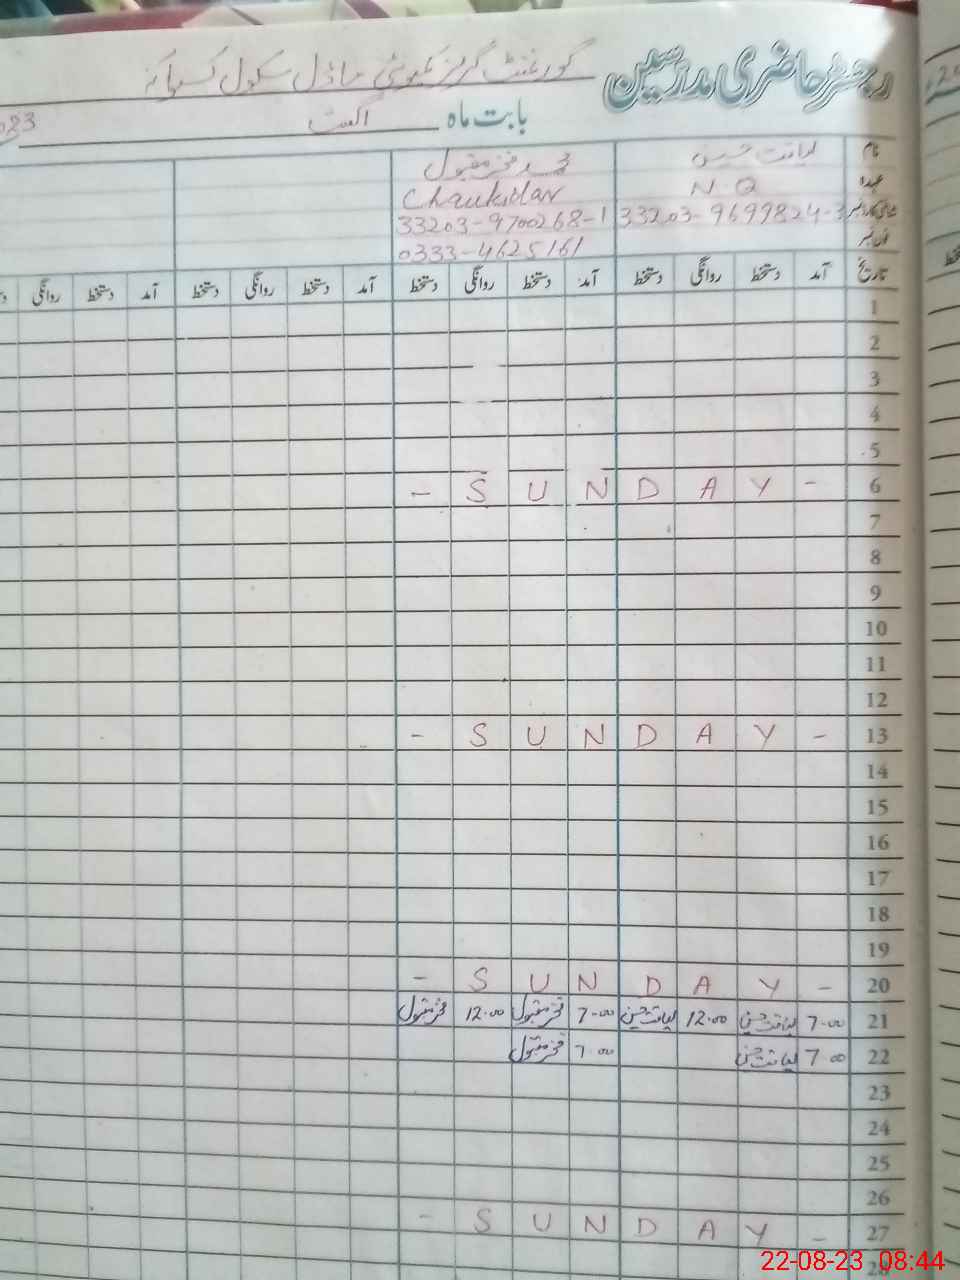 رجسٹر حاضری مدرسین گورنمنٹ گرلز کمیونٹی ماڈل سکول
بابت ماہ اگست
نام لیاقت حسین محمد فخر مقبول
عہدہ N.Q Chaukidar
33203-9699824-3 33203-9700268-1
فون نمبر 0333-4625161
تاریخ آمد دستخط روانگی دستخط آمد دستخط روانگی دستخط آمد دستخط روانگی دستخط آمد دستخط روانگی
1
2
3
4
5
6 - S U N D A Y -
7
8
9
10
11
12
13 - S U N D A Y -
14
15
16
17
18
19
20 - S U N D A Y -
21 7-00 لیاقت حسین 12-00 لیاقت حسین 7-00 فخر مقبول 12-00 فخر مقبول
22 7-00 لیاقت حسین 7-00 فخر مقبول
23
24
25
26
27 - S U N D A Y -
28
22-08-23 08:44